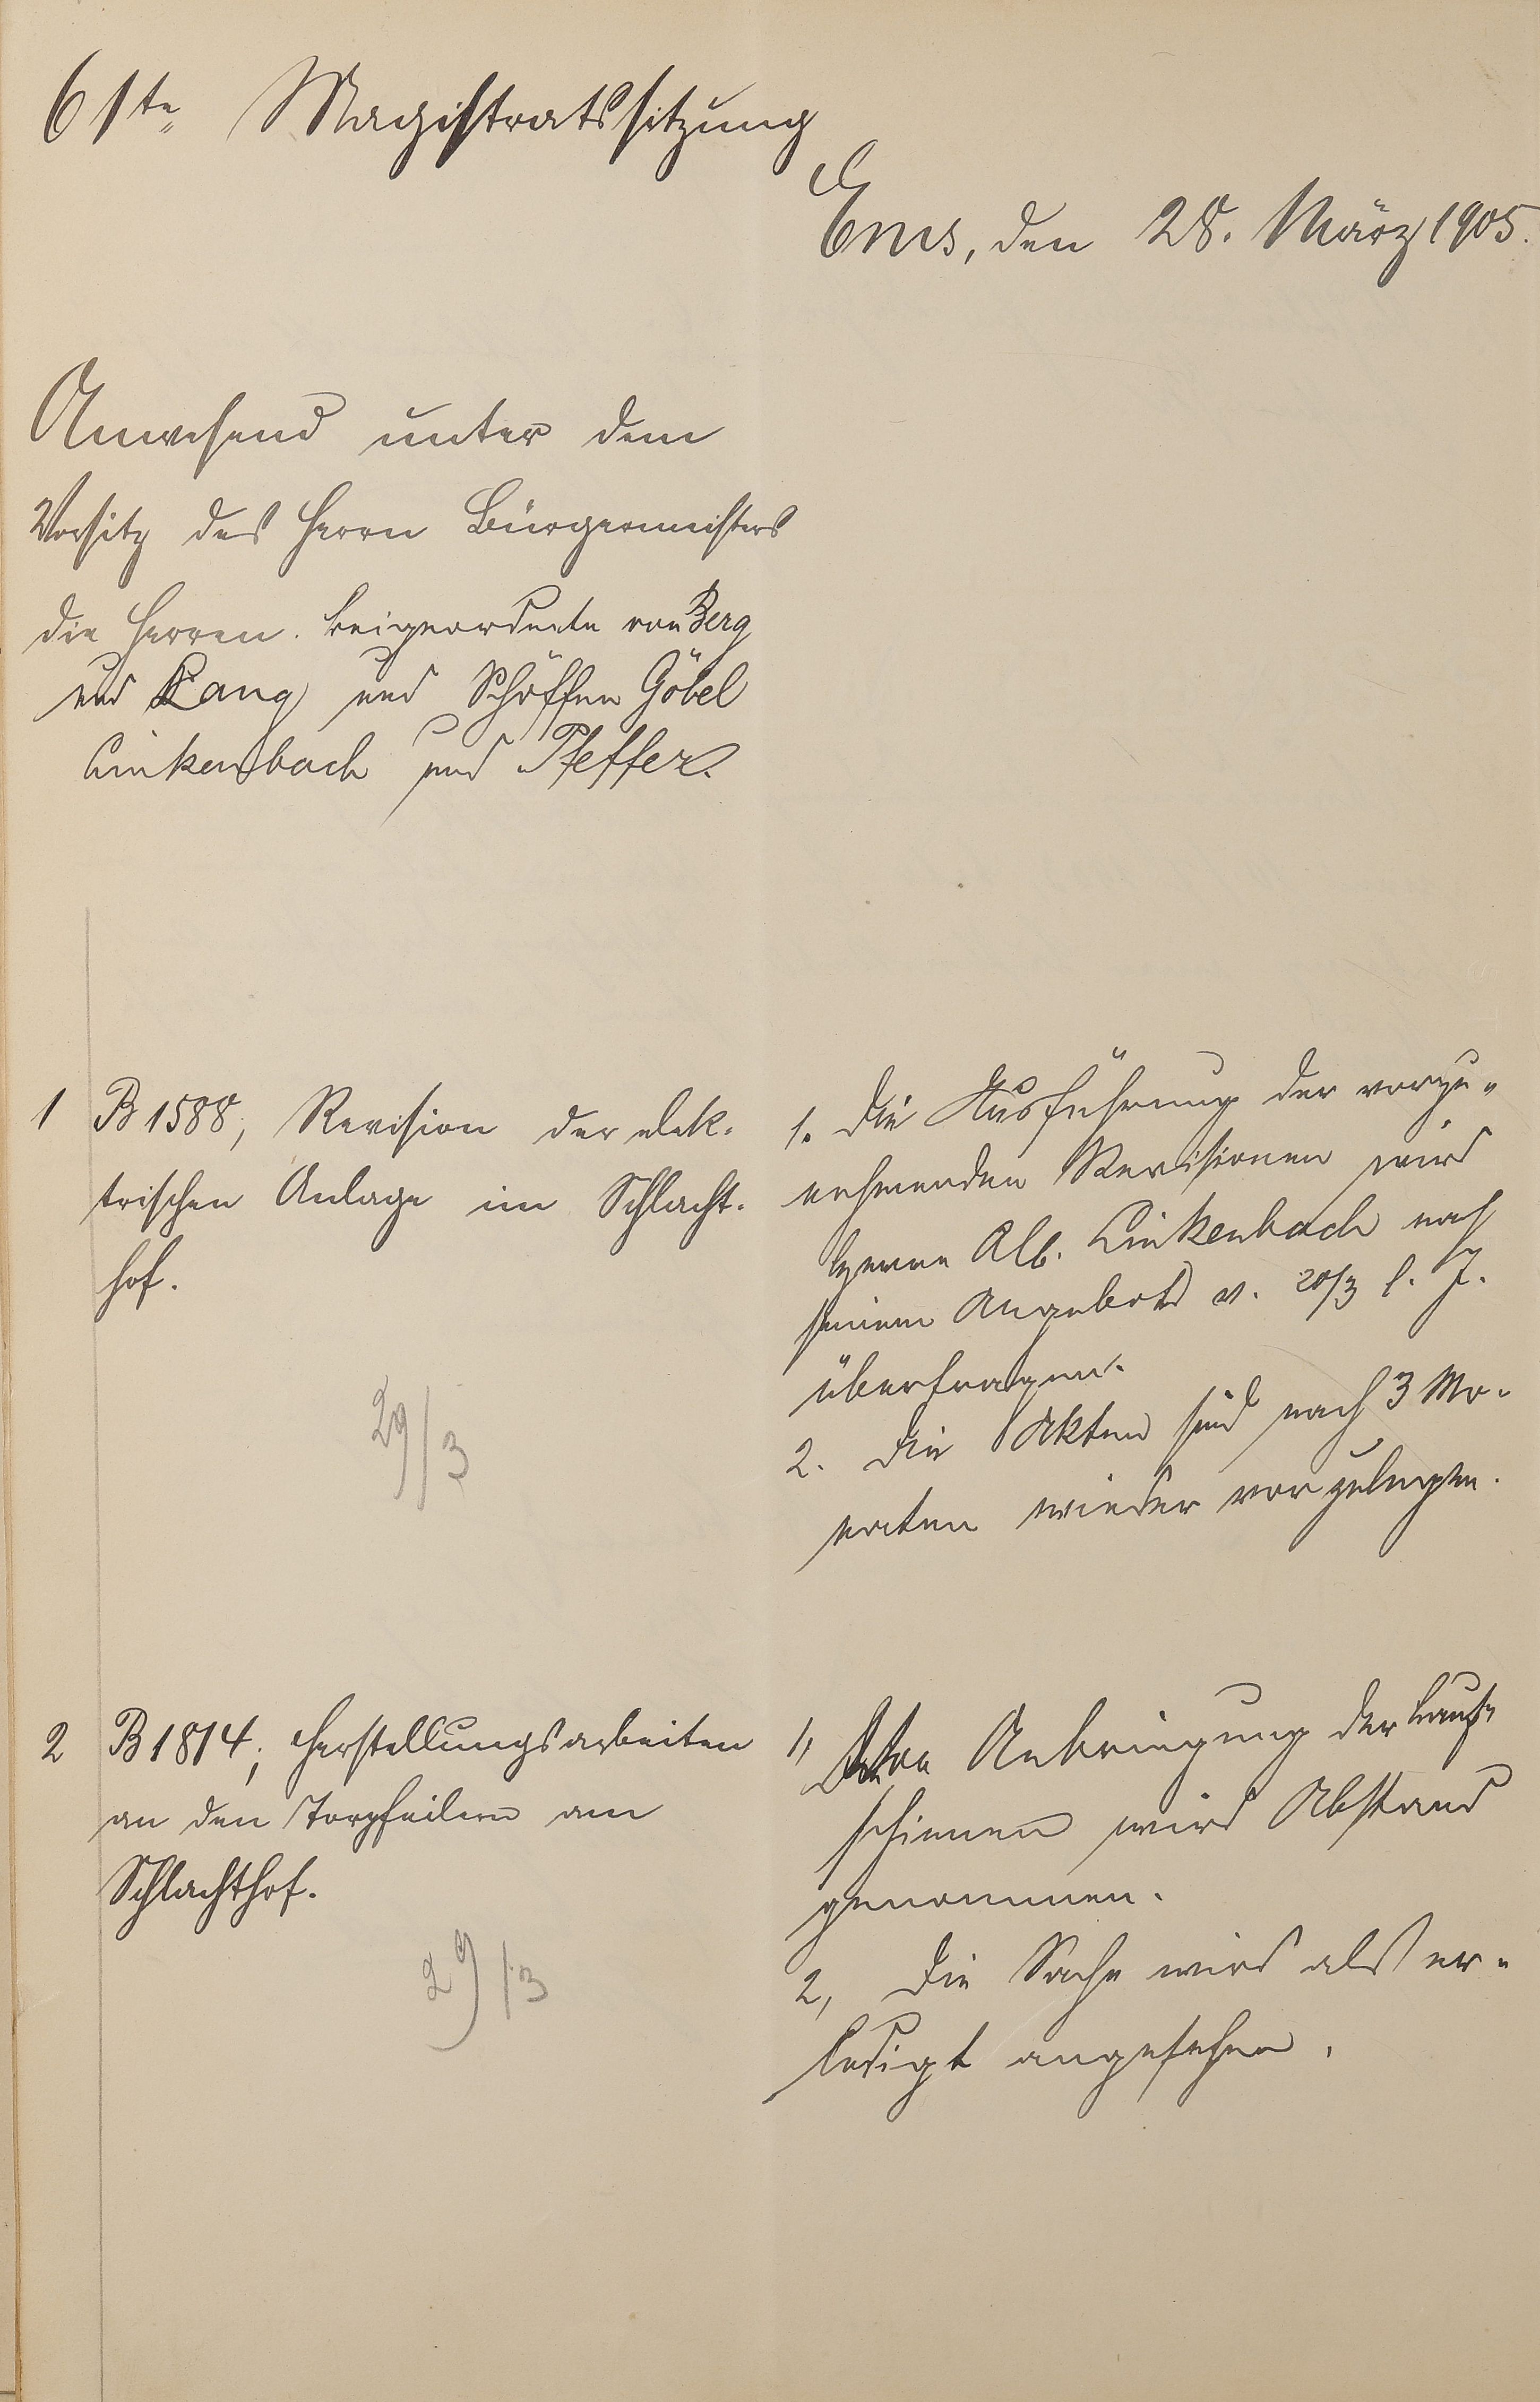 6 1te Magistratssitzung
Ems, den 28. März 1905.
Anwesend unter dem
Vorsitz des Herrn Bürgermeisters
die Herren Beigeordnete von Berg
und Lang und Schöffen Göbel
Linkenbach und Pfeffer.
1 B 1588, Revision der elek-
trischen Anlage im Schlacht-
hof.
29/3
1. Die Ausführung der vorzu-
nehmenden Revisionen wird
Herrn Alb. Linkenbach nach
seinem Angebot v. 20/3 l. J.
übertragen.
2. Die Akten sind nach 3 Mo-
naten wieder vorzulegen.
2 B 1814; Herstellungsarbeiten
an den Torpfeilern am
Schlachthof.
29/3
1, Von Anbringung der Lauf-
schienen wird Abstand
genommen.
2, Die Sache wird als er-
ledigt angesehen.